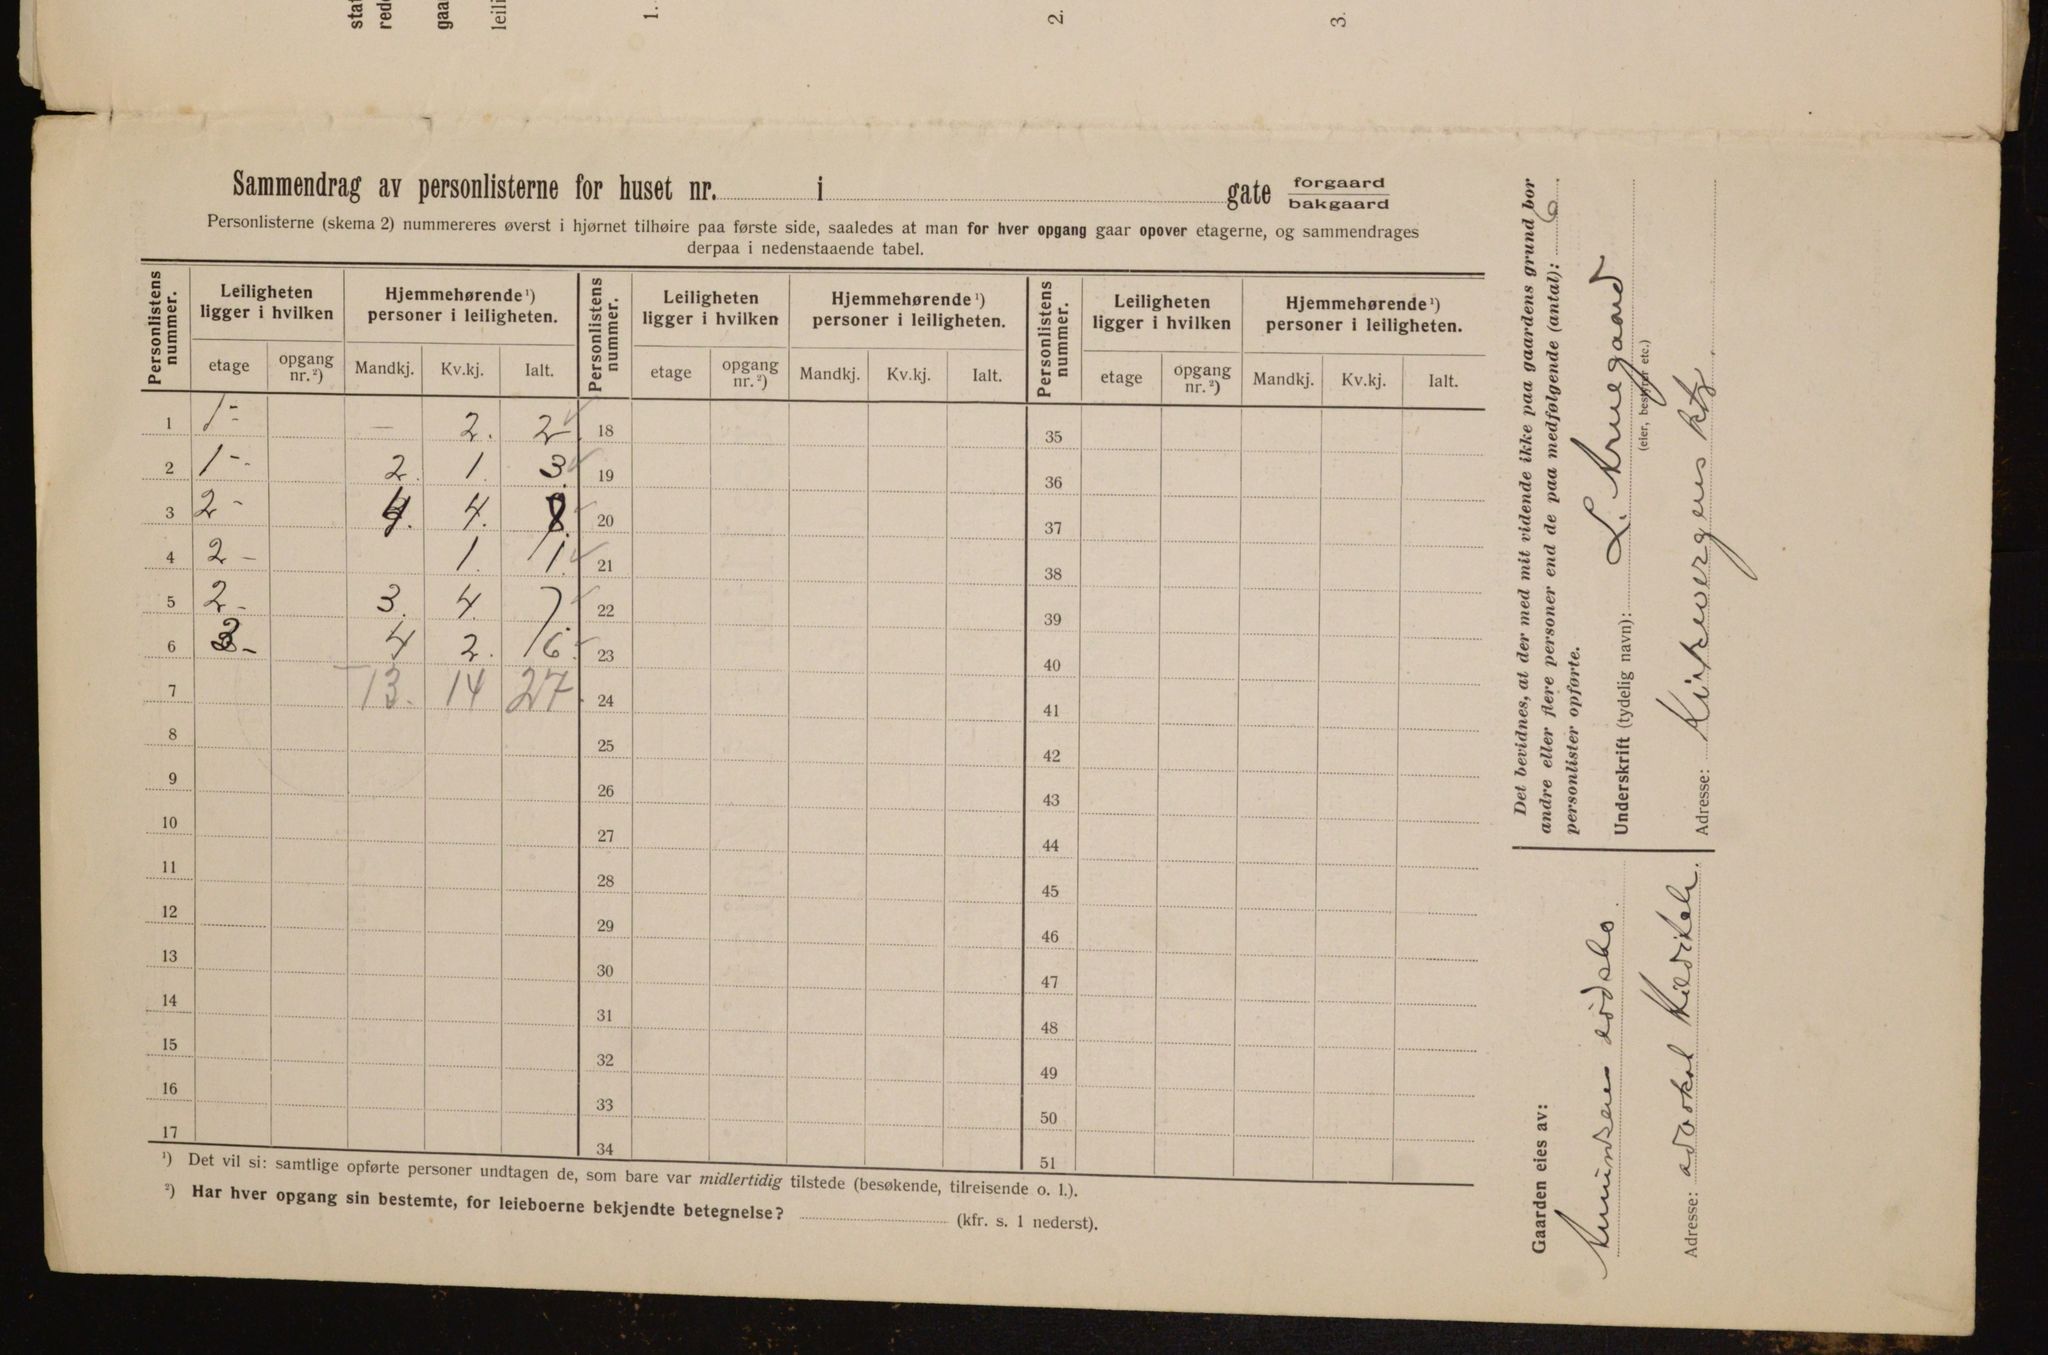 stat
rede
gaa
leili
1.
2.
3.
Sammendrag av personlisterne for huset nr. i gate forgaard
bakgaard
Personlisterne (skema 2) nummereres øverst i hjørnet tilhøire paa første side, saaledes at man for hver opgang gaar opover etagerne, og sammendrages
derpaa i nedenstaaende tabel.
Personlistens nummer. Leiligheten ligger i hvilken Hjemmehørende ¹) personer i leiligheten. Personlistens nummer. Leiligheten ligger i hvilken Hjemmehørende ¹) personer i leiligheten. Personlistens nummer. Leiligheten ligger i hvilken Hjemmehørende ¹) personer i leiligheten.
etage opgang nr. ²) Mandkj. Kv.kj. Ialt. etage opgang nr. ²) Mandkj. Kv.kj. Ialt. etage opgang nr. ²) Mandkj. Kv.kj. Ialt.
1 1- — 2. 2 18 35
2 1-. 2. 1. 3. 19 36
3 2- 4. 4. 8. 20 37
4 2- 1. 1. 21 38
5 2- 3. 4. 7. 22 39
6 3- 4 2. 6. 23 40
7 13. 14 27 24 41
8 25 42
9 26 43
10 27 44
11 28 45
12 29 46
13 30 47
14 31 48
15 32 49
16 33 50
17 34 51
¹) Det vil si: samtlige opførte personer undtagen de, som bare var midlertidig tilstede (besøkende, tilreisende o. l.).
²) Har hver opgang sin bestemte, for leieboerne bekjendte betegnelse? (kfr. s. 1 nederst).
Det bevidnes, at der med mit vidende ikke paa gaardens grund bor
andre eller flere personer end de paa medfølgende (antal): 6
personlister opførte.
Underskrift (tydelig navn): L. Kruegaard
(eier, bestyrer etc.)
Adresse: Kirkevergens ktr.
Gaarden eies av:
dødsbo.
Adresse: advokat